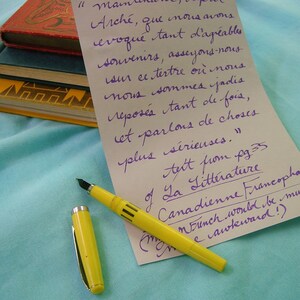 " Maintenant,
Arché, que nous avons
évoqué tant d'agréables
souvenirs, asseyons-nous
sur ce tertre où nous
nous sommes jadis
reposés tant de fois,
et parlons de choses
plus sérieuses."
text from pg 35
of La Littérature
Canadienne Francophone
French would be
awkward!)